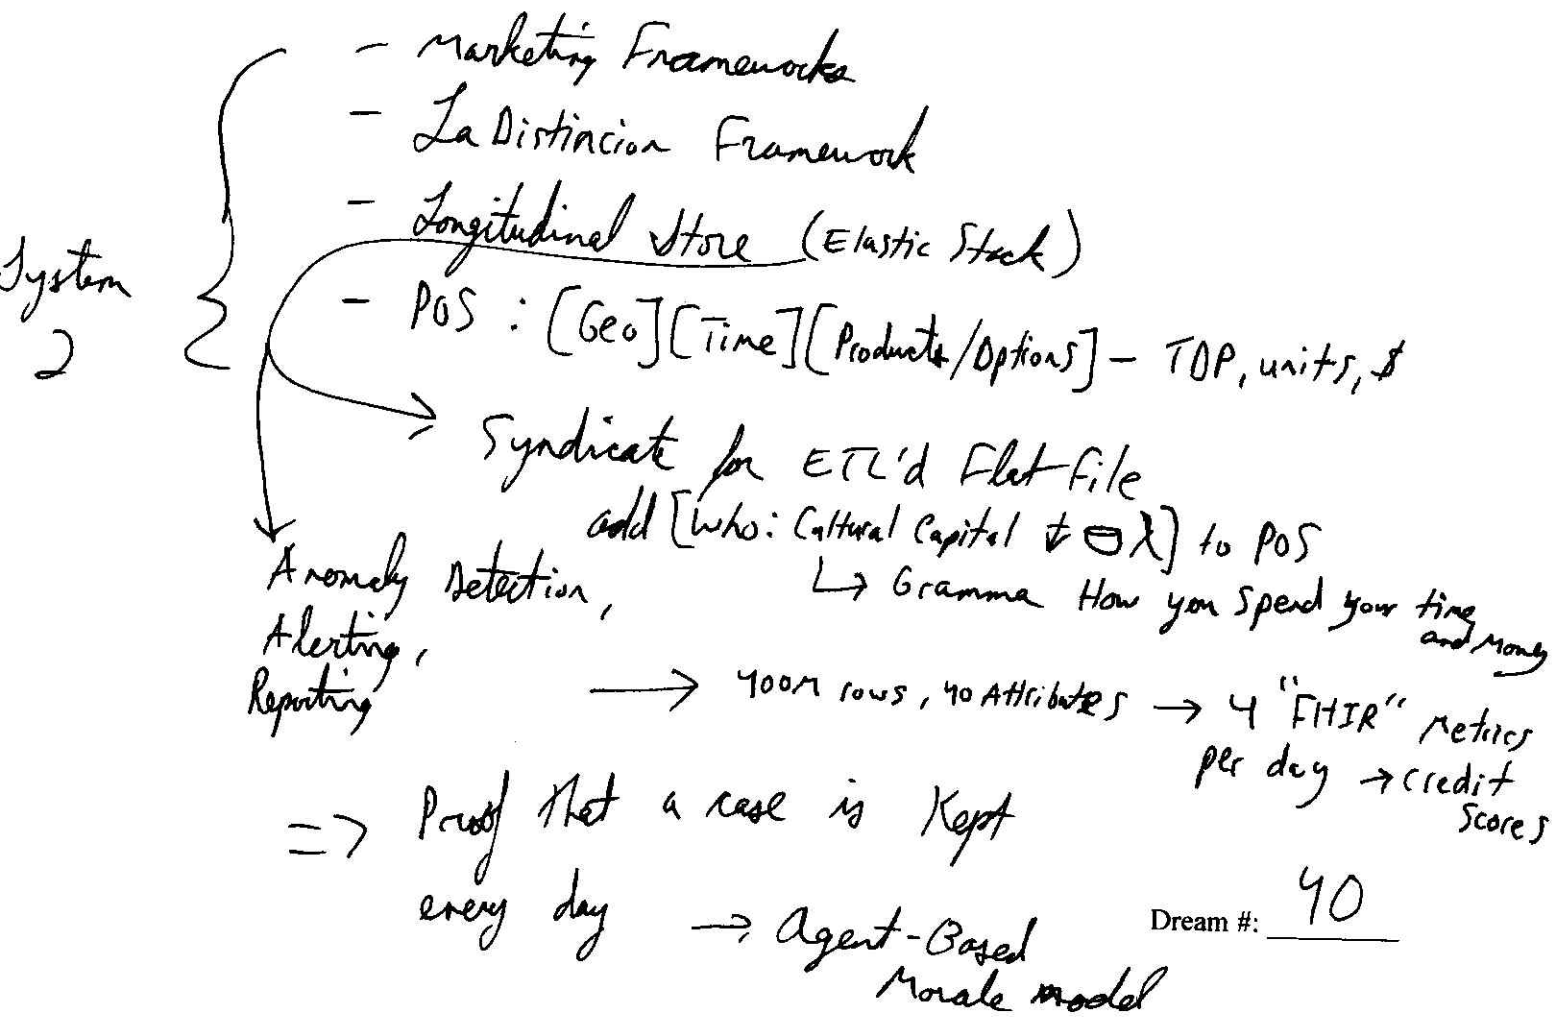 - Marketing Frameworks
- La Distincion Framework
- Longitudinal Store (Elastic Stack)
System
2
- POS : [Geo][Time][Products/Options] - TDP, units, $
Syndicate for ETL'd Flat File
add [Who: Cultural Capital λ] to POS
Anomaly Detection,
↳ Gramma How you Spend your time
and Money
Alerting,
Reporting
→ 400M rows, 40 Attributes → 4 "FHIR" Metrics
per day → Credit
Scores
=> Proof that a case is Kept
every day → Agent-Based
Morale model
Dream #: 40